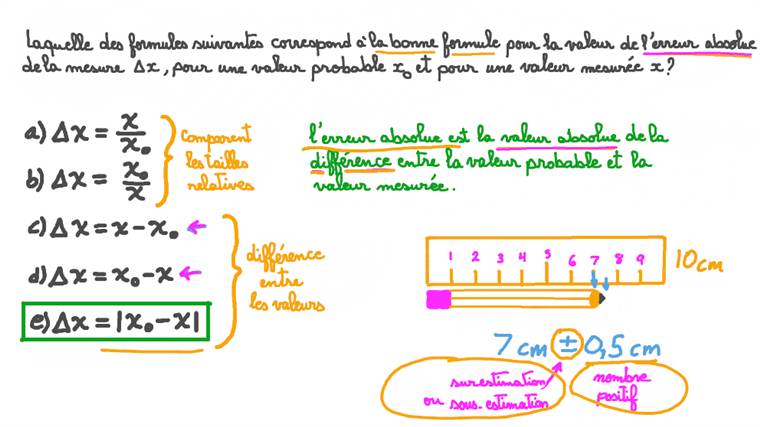 Laquelle des formules suivantes correspond à la bonne formule pour la valeur de l'erreur absolue
de la mesure Δx, pour une valeur probable x₀ et pour une valeur mesurée x?
a) Δx = x/x₀
b) Δx = x₀/x
comparent
les tailles
relatives
c) Δx = x - x₀
d) Δx = x₀ - x
e) Δx = |x₀ - x|
différence
entre
les valeurs
l'erreur absolue est la valeur absolue de la
différence entre la valeur probable et la
valeur mesurée.
1 2 3 4 5 6 7 8 9
10 cm
7 cm ± 0,5 cm
surestimation
ou sous-estimation
nombre
positif